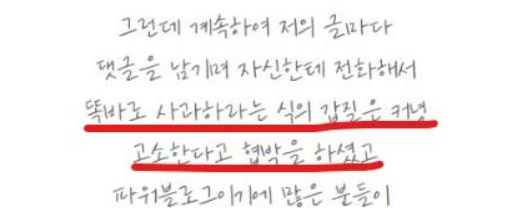 그런데 계속하여 저의 글마다
댓글을 남기며 자신한테 전화해서
똑바로 사과하라는 식의 갑질은 커녕
고소한다고 협박을 하셨고
파워블로그이기에 많은 분들이